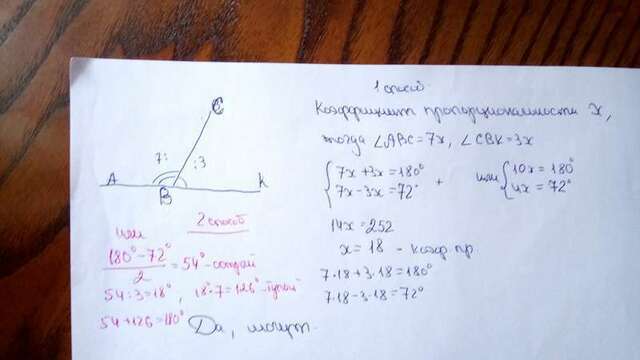 1 способ.
Коэффициент пропорциональности x,
тогда ∠ABC=7x, ∠CBK=3x
{7x+3x=180°
{7x-3x=72°
+
или {10x=180°
{4x=72°
14x=252
x=18 - коэф пр.
7·18+3·18=180°
7·18-3·18=72°
C
7:
:3
A
B
K
или
2 способ
(180°-72°)/2=54°-острый
54:3=18°, 18°·7=126°-тупой
54+126=180°
Да, могут.